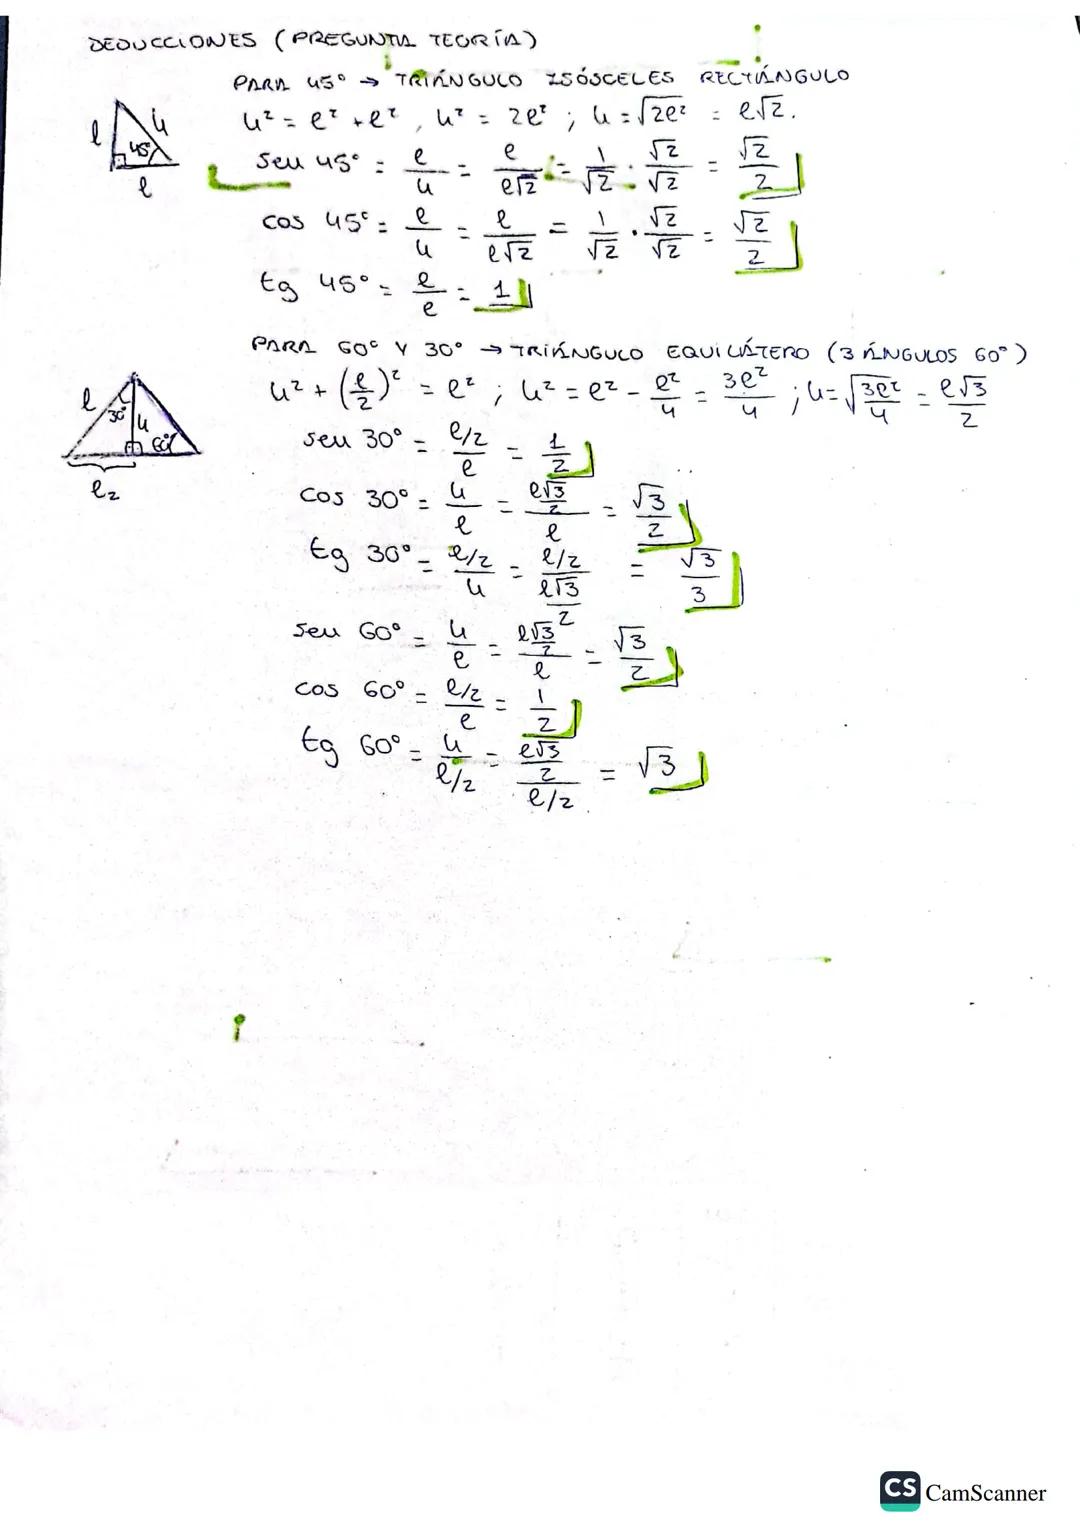 DEDUCCIONES (PREGUNTA TEORÍA)
PARA 45° → TRIÁNGULO ISÓSCELES RECTÁNGULO
h² = l² + l², h² = 2l² ; h = √2l² = l√2.
l h 45° l
sen 45° = l/h = l/l√2 = 1/√2 · √2/√2 = √2/2
cos 45° = l/h = l/l√2 = 1/√2 · √2/√2 = √2/2
tg 45° = l/l = 1
PARA 60° Y 30° → TRIÁNGULO EQUILÁTERO (3 ÁNGULOS 60°)
h² + (l/2)² = l² ; h² = l² - l²/4 = 3l²/4 ; h = √3l²/4 = l√3/2
l 30° h 60° l2
sen 30° = l/2/l = 1/2
cos 30° = h/l = l√3/2/l = √3/2
tg 30° = l/2/h = l/2/l√3/2 = √3/3
sen 60° = h/l = l√3/2/l = √3/2
cos 60° = l/2/l = 1/2
tg 60° = h/l/2 = l√3/2/l/2 = √3
CS CamScanner